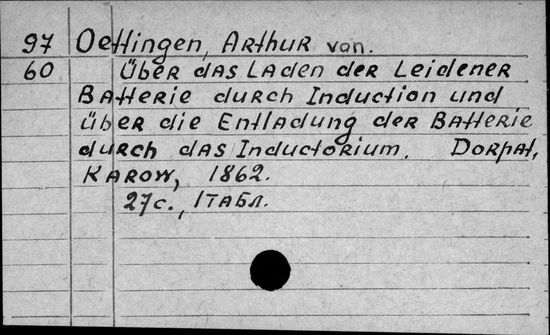 97 Oettingen, Arthur von.
60 Über das Laden der Leidener
Batterie durch Induction und
über die Entladung der Batterie
durch das Inductorium. Dorpat,
Karow, 1862.
27с., 1табл.